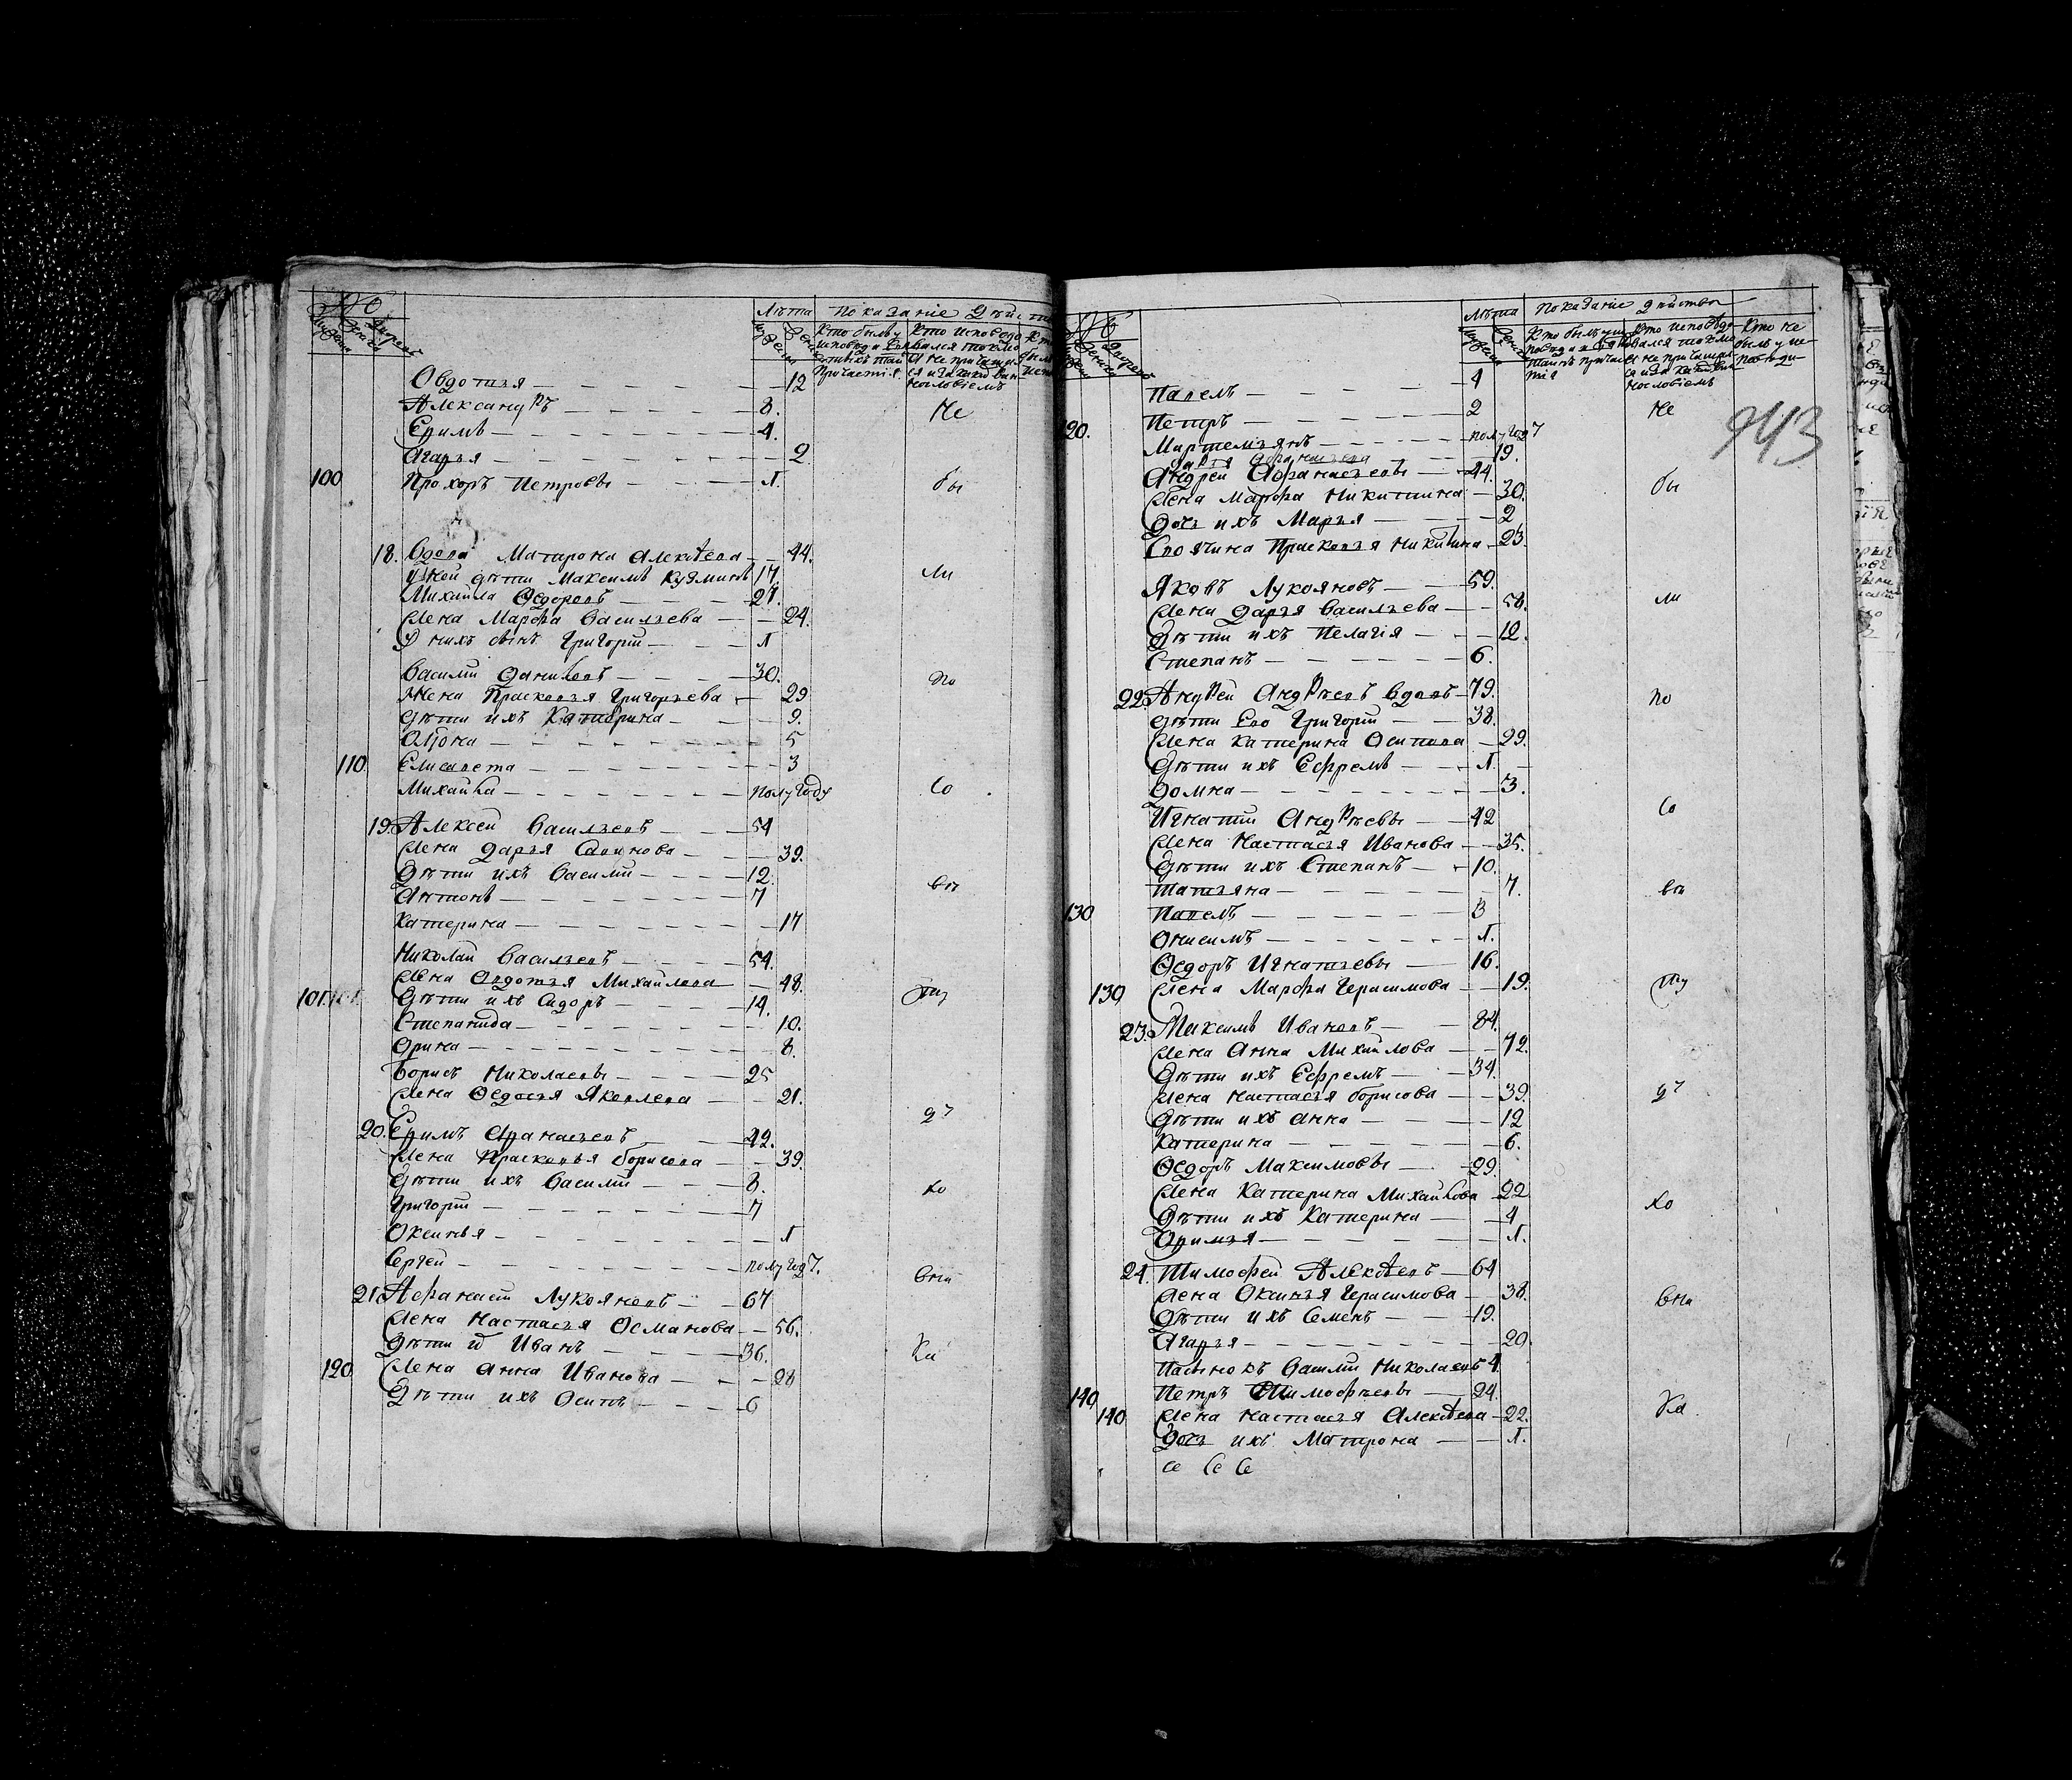 №
Лѣта Показание дѣйст
Мужеска Женска дворовъ
Овдотья 12
Александръ 8.
Ефимъ 4.
Агафья 2
100 Прохоръ Петровъ 1
Не
бы
18. Вдова Матрона Алексѣева 44.
У ней дѣти Максимъ Кузминъ 17.
Михаила Ѳедоровъ 27.
Жена Марѳа Васильева 24.
У нихъ сынъ Григорий 1
ли
Василий Даниловъ 30.
Жена Прасковья Григорьева 29
дѣти ихъ Катерина 9.
Алiона 5
110 Елисавета 3
Михайла полугоду
по
Со
19. Алексей Васильевъ 54
Жена Дарья Савинова 39.
Дѣти ихъ Василий 12.
Антонъ 7
Катерина 17
вѣ
Николай Васильевъ 54.
Жена Авдотья Михайлова 48.
101 101 Дѣти ихъ Сидоръ 14.
Степанида 10.
Орина 8.
Борисъ Николаевъ 25
Жена Ѳедосья Яковлева 21.
ту
20. Ефимъ Афанасьевъ 42.
Жена Прасковья Борисова 39.
Дѣти ихъ Василий 8.
Григорий 7
Оксинья 1
Сергей полугод.
ду
хо
вни
21. Афанасий Лукояновъ 67
Жена Настасья Османова 56.
Дѣти Иванъ 36.
120 Жена Анна Иванова 28
Дѣти ихъ Осипъ 6
Ка
№
Лѣта Показание дѣйства
Кто не былъ у исповѣди
943
Павелъ 4
Петръ 2
20. Мартемьянъ полугод
Дарья Афанасьева 19.
Андрей Афанасьевъ 44.
Жена Марфа Никитина 30.
Дочь ихъ Марья 2
Прасковья Никитина 23.
Не
бы
Яковъ Лукояновъ 59.
Жена Дарья Васильева 58.
Дѣти ихъ Пелагiя 12.
Степанъ 6.
ли
22. Андрей Андрѣевъ вдовъ 79.
дѣти Ево Григорий 38.
Жена Катерина Осипова 29.
Дѣти ихъ Ефремъ 1.
Домна 3.
по
Игнатий Андрѣевъ 42
Жена Настасья Иванова 35.
Дѣти ихъ Степанъ 10.
Татьяна 7.
130 Павелъ 3
Онисимъ 1.
Ѳедоръ Игнатьевъ 16.
130 Жена Марфа Герасимова 19.
Со
вѣ
ту
23. Максимъ Ивановъ 84.
Жена Анна Михайлова 72.
Дѣти ихъ Ефремъ 34.
Жена Настасья Борисова 39.
Дѣти ихъ Анна 12
Катерина 6.
Ѳедоръ Максимовъ 29.
Жена Катерина Михайлова 22
Дѣти ихъ Катерина 4
Офимья 1.
ду
хо
24. Тимофей Алексѣевъ 64
Жена Оксинья Герасимова 38.
Дѣти ихъ Семенъ 19.
Агафья 20.
Пасынокъ Василий Николаевъ 4
140 Петръ Тимофѣевъ 24.
140 Жена Настасья Алексѣева 22.
Дочь ихъ Матрона 1.
вни
Ка